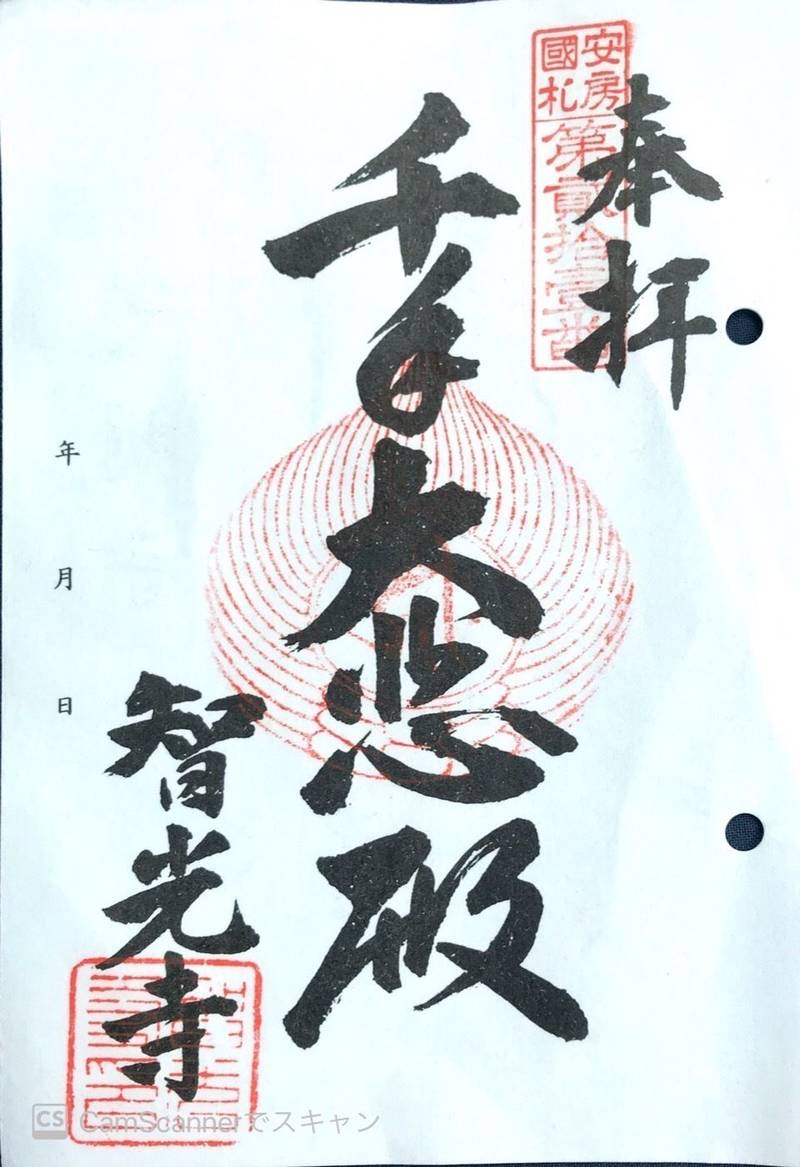 奉拝
安房
國札
第貳拾壹番
千手大悲殿
智光寺
年 月 日
CS CamScannerでスキャン